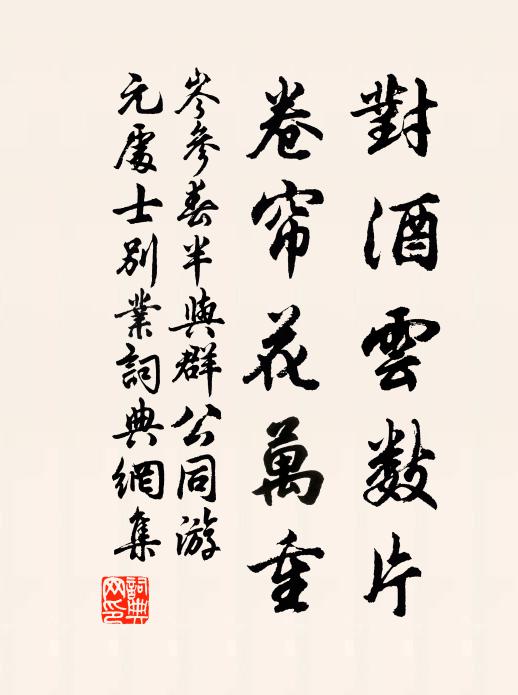 對酒雲數片
卷帘花萬重
岑參春半與群公同游
元處士別業詞典網集
詞典網印